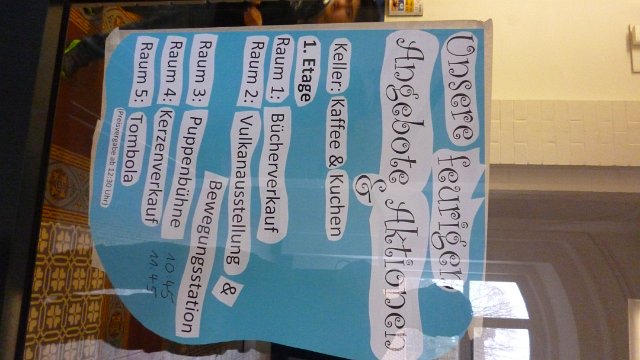 Unsere feurigen
Angebote & Aktionen
Keller: Kaffee & Kuchen
1. Etage
Raum 1: Bücherverkauf
Raum 2: Vulkanausstellung &
Bewegungsstation
Raum 3: Puppenbühne 10 45
11 45
Raum 4: Kerzenverkauf
Raum 5: Tombola
(Preisvergabe ab 12:30 Uhr)